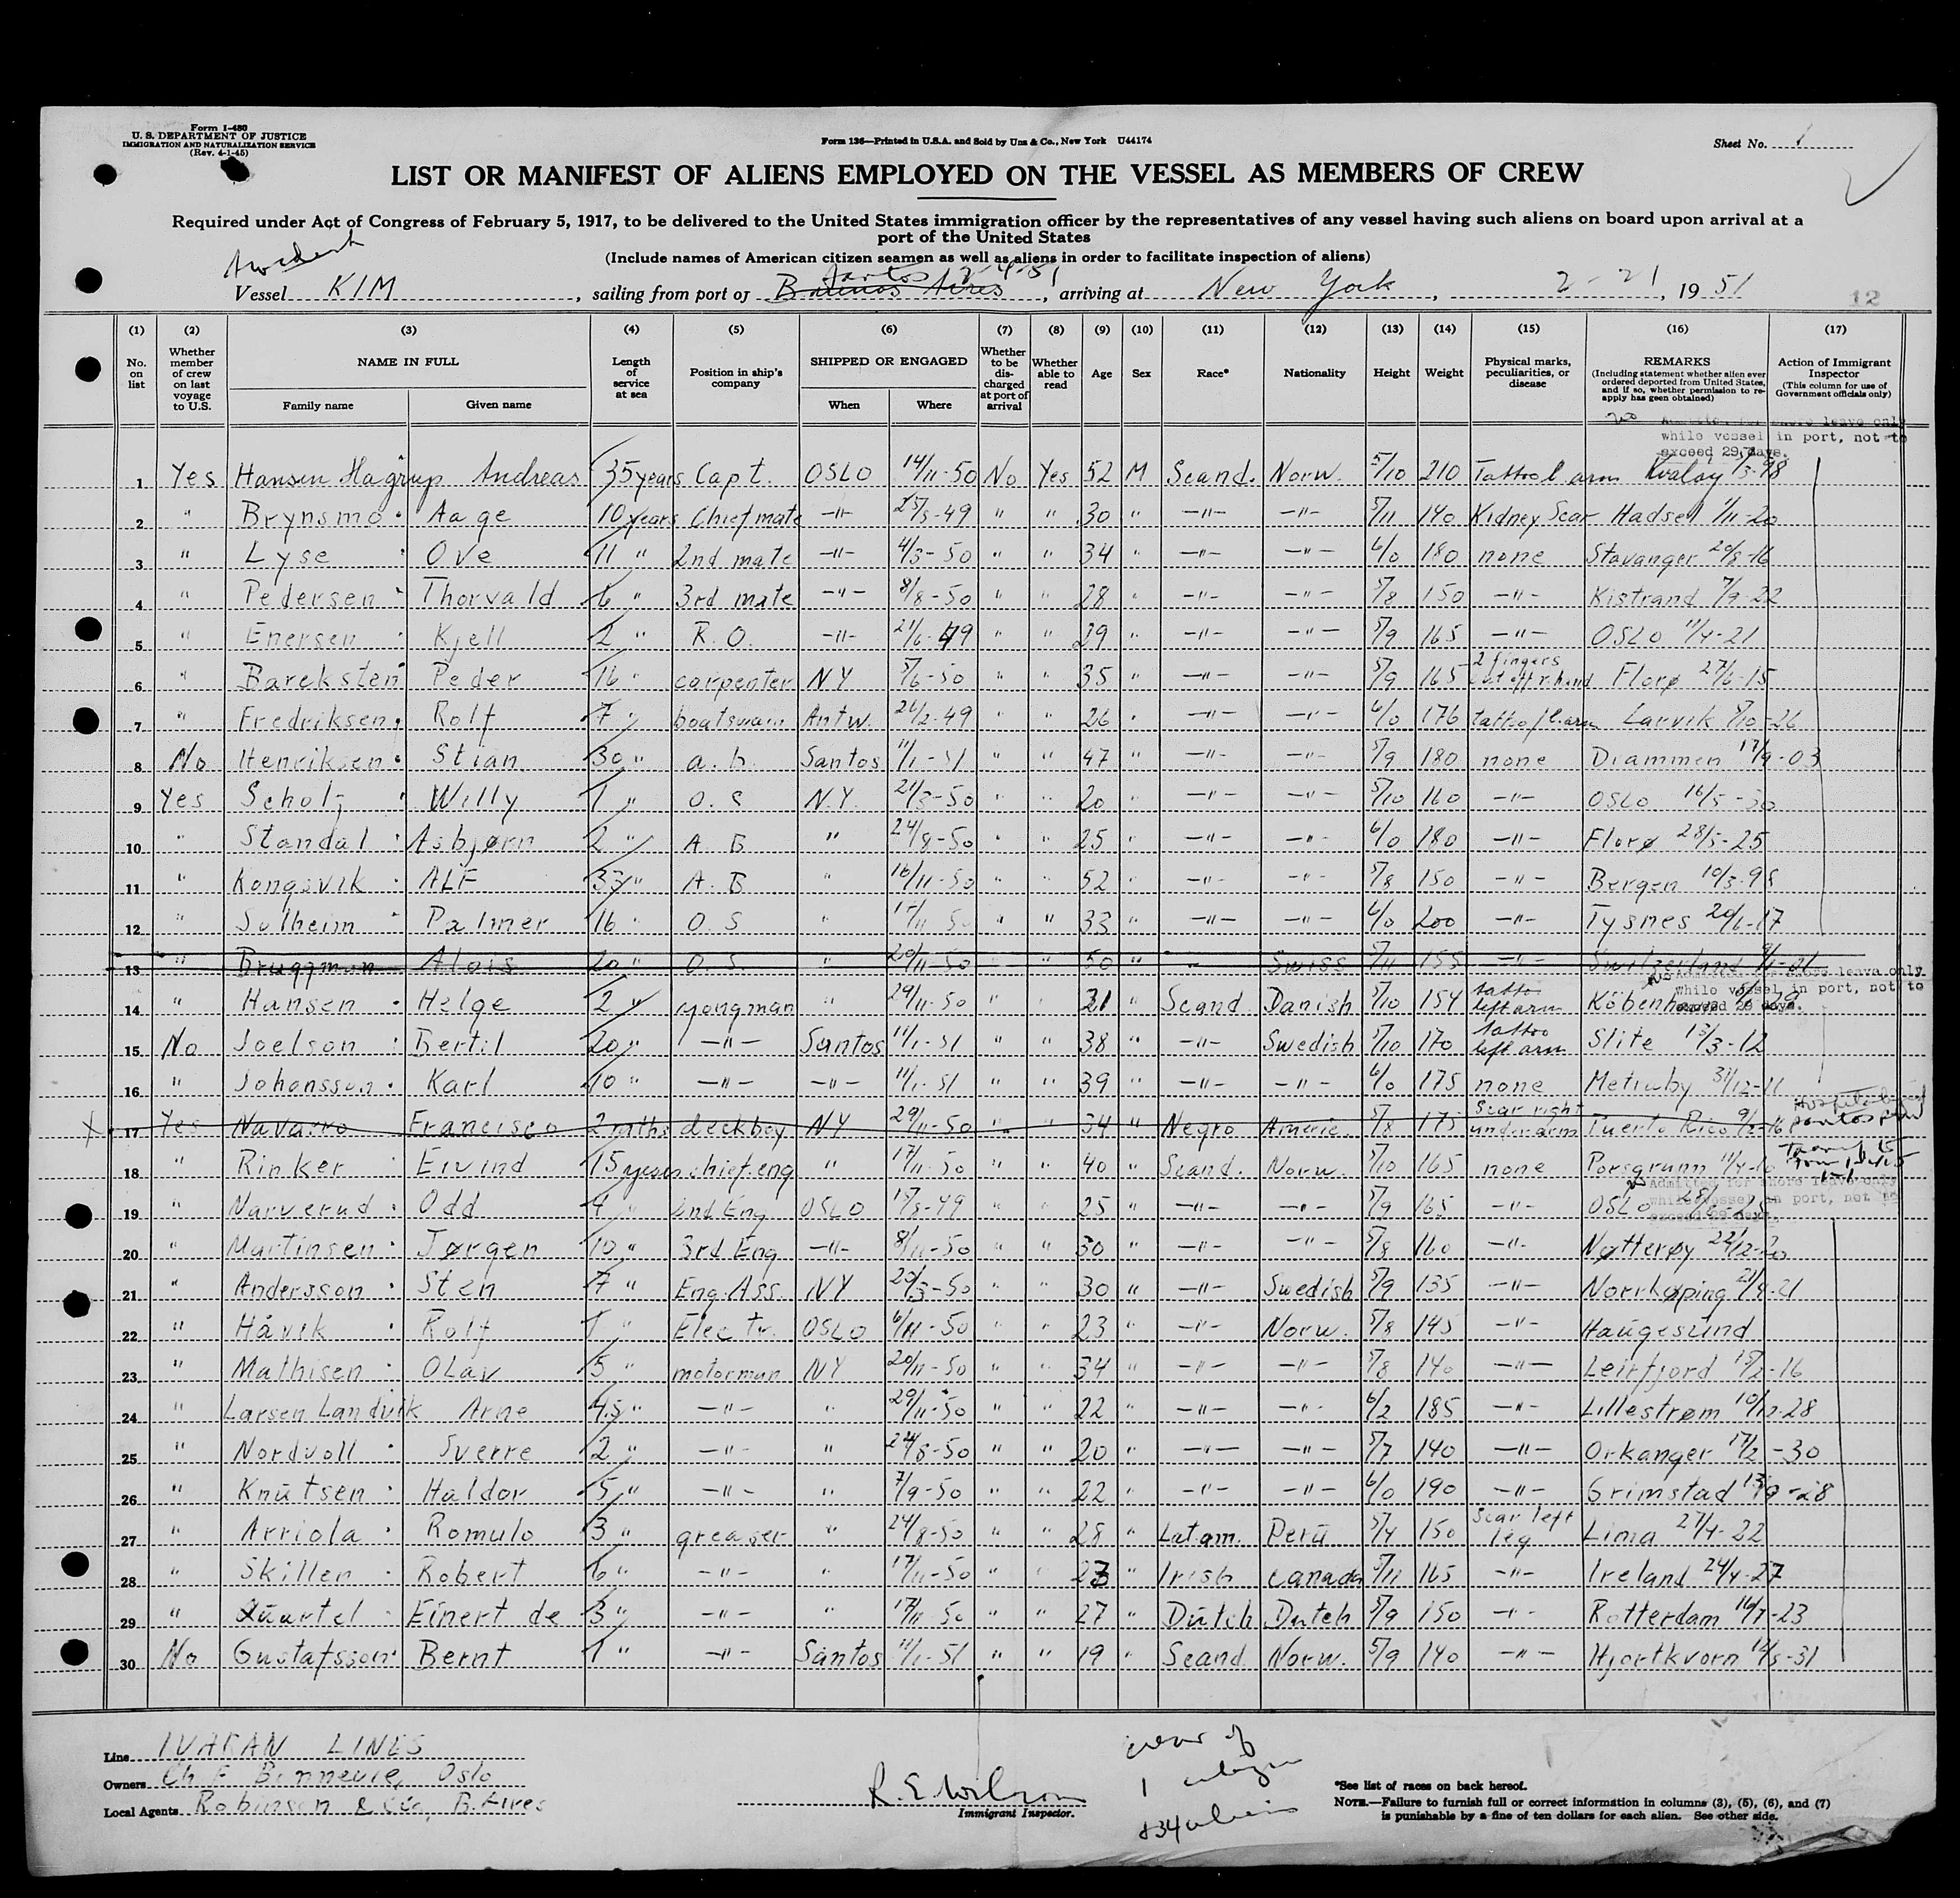 Form I-480
U. S. DEPARTMENT OF JUSTICE
IMMIGRATION AND NATURALIZATION SERVICE
(Rev. 4-1-45)
Form 136—Printed in U.S.A. and Sold by Unz & Co., New York U44174
Sheet No. 1
LIST OR MANIFEST OF ALIENS EMPLOYED ON THE VESSEL AS MEMBERS OF CREW
Required under Act of Congress of February 5, 1917, to be delivered to the United States immigration officer by the representatives of any vessel having such aliens on board upon arrival at a
port of the United States
(Include names of American citizen seamen as well as aliens in order to facilitate inspection of aliens)
Santos 2-4-51
Vessel KIM, sailing from port of Buenos Aires, arriving at New York, 2-21, 1951
12
(1) (2) (3) (4) (5) (6) (7) (8) (9) (10) (11) (12) (13) (14) (15) (16) (17)
No. on list
Whether member of crew on last voyage to U.S.
NAME IN FULL
Family name Given name
Length of service at sea
Position in ship's company
SHIPPED OR ENGAGED
When Where
Whether to be discharged at port of arrival
Whether able to read
Age
Sex
Race*
Nationality
Height
Weight
Physical marks, peculiarities, or disease
REMARKS
(Including statement whether alien ever ordered deported from United States, and if so, whether permission to reapply has been obtained)
Action of Immigrant Inspector
(This column for use of Government officials only)
shore leave only
while vessel in port, not to
exceed 29 days.
1 Yes Hansen Hagrup Andreas 35 years Capt. OSLO 14/11-50 No Yes 52 M Scand. Norw. 5/10 210 Tattoo l. arm Kvaløy /3-98
2 " Brynsmo Aage 10 years Chief mate -"- /5-49 " " 30 " -"- -"- 5/11 140 Kidney Scar Hadsel 1/11-20
3 " Lyse Ove 11 " 2nd mate -"- 4/3-50 " " 34 " -"- -"- 6/0 180 none Stavanger 20/8-16
4 " Pedersen Thorvald 6 " 3rd mate -"- 8/8-50 " " 28 " -"- -"- 5/8 150 -"- Kistrand 7/9-22
5 " Enersen Kjell 2 " R. O. -"- 21/6-49 " " 29 " -"- -"- 5/9 165 -"- OSLO 11/4-21
6 " Barcksten Peder 16 " carpenter NY 5/6-50 " " 35 " -"- -"- 5/9 165 2 fingers cut off r. hand Florø 27/6-15
7 " Fredriksen Rolf 7 " boatswain Antw. 26/2-49 " " 26 " -"- -"- 6/0 176 tattoo l. arm Larvik /10-26
8 No Henriksen Stian 30 " a. b. Santos 11/1-51 " " 47 " -"- -"- 5/9 180 none Drammen 17/9-03
9 Yes Scholz Willy 1 " O. S N.Y. 21/3-50 " " 20 " -"- -"- 5/10 160 -"- OSLO 16/5-30
10 " Standal Asbjørn 2 " A. B " 24/8-50 " " 25 " -"- -"- 6/0 180 -"- Florø 28/5-25
11 " Kongsvik ALF 33 " A. B " 16/11-50 " " 52 " -"- -"- 5/8 150 -"- Bergen 10/3-98
12 " Solheim Palmer 16 " O. S " 17/11 50 " " 33 " -"- -"- 6/0 200 -"- Tysnes 20/6-17
13 " Bruggman Alois 20 " O. S. " 20/11-50 " " 50 " - Swiss 5/11 155 -"- Switzerland
Admitted shore leave only
while vessel in port, not to
exceed 29 days.
14 " Hansen Helge 2 " yongman " 29/11-50 " " 21 " Scand. Danish 5/10 154 tattoo left arm København
15 No Joelson Bertil 20 " -"- Santos 11/1-51 " " 38 " -"- Swedish 5/10 170 tattoo left arm Slite 13/3-12
16 " Johansson Karl 10 " -"- -"- 11/1-51 " " 39 " -"- -"- 6/0 175 none 31/12-11
17 Yes Navarro Francisco 2 mths deckboy NY 29/11-50 " " 34 " Negro Americ. 5/8 175 Scar right under arm Puerto Rico 9/2-16
18 " Rinker Eivind 15 years chief eng " 17/11-50 " " 40 " Scand. Norw. 5/10 165 none Porsgrunn
Admitted for shore leave only
while vessel in port, not to
exceed 29 days.
19 " Narverud Odd 4 " 2nd Eng OSLO 15/3-49 " " 25 " -"- -"- 5/9 165 -"- OSLO
20 " Martinsen Jørgen 10 " 3rd Eng -"- 8/11-50 " " 30 " -"- -"- 5/8 160 -"- Nøtterøy 22/12-20
21 " Andersson Sten 7 " Eng. Ass. NY 20/3-50 " " 30 " -"- Swedish 5/9 135 -"- Norrkøping 21/4-21
22 " Håvik Rolf 1 " Electr. OSLO 6/11-50 " " 23 " -"- Norw. 5/8 145 -"- Haugesund
23 " Mathisen OLav 5 " motorman NY 20/11-50 " " 34 " -"- -"- 5/8 140 -"- Leirfjord 15/2-16
24 " Larsen Landvik Arne 4,5 " -"- " 29/11-50 " " 22 " -"- -"- 6/2 185 -"- Lillestrøm 10/12-28
25 " Nordvoll Sverre 2 " -"- " 24/8-50 " " 20 " -"- -"- 5/7 140 -"- Orkanger 17/2-30
26 " Knutsen Haldor 5 " -"- " 7/9-50 " " 22 " -"- -"- 6/0 190 -"- Grimstad 13/9-28
27 " Arriola Romulo 3 " greaser " 24/8-50 " " 28 " Lat.am. Peru 5/4 150 Scar left leg Lima 27/4-22
28 " Skillen Robert 6 " -"- " 17/11-50 " " 23 " Irish Canada 5/11 165 -"- Ireland 24/4-27
29 " Quartel Einert de 3 " -"- " 17/11-50 " " 27 " Dutch Dutch 5/9 150 -"- Rotterdam 16/7-23
30 No Gustafsson Bernt 1 " -"- Santos 11/1-51 " " 19 " Scand. Norw. 5/9 140 -"- Hjortkvorn 12/5-31
Line IVARAN LINES
Owners Ch. F Bonnevie, Oslo
Local Agents Robinson & Co, B. Aires
R. E. Wilson
Immigrant Inspector.
crew of
1 citizen
+34 aliens
*See list of races on back hereof.
NOTE.—Failure to furnish full or correct information in columns (3), (5), (6), and (7)
is punishable by a fine of ten dollars for each alien. See other side.